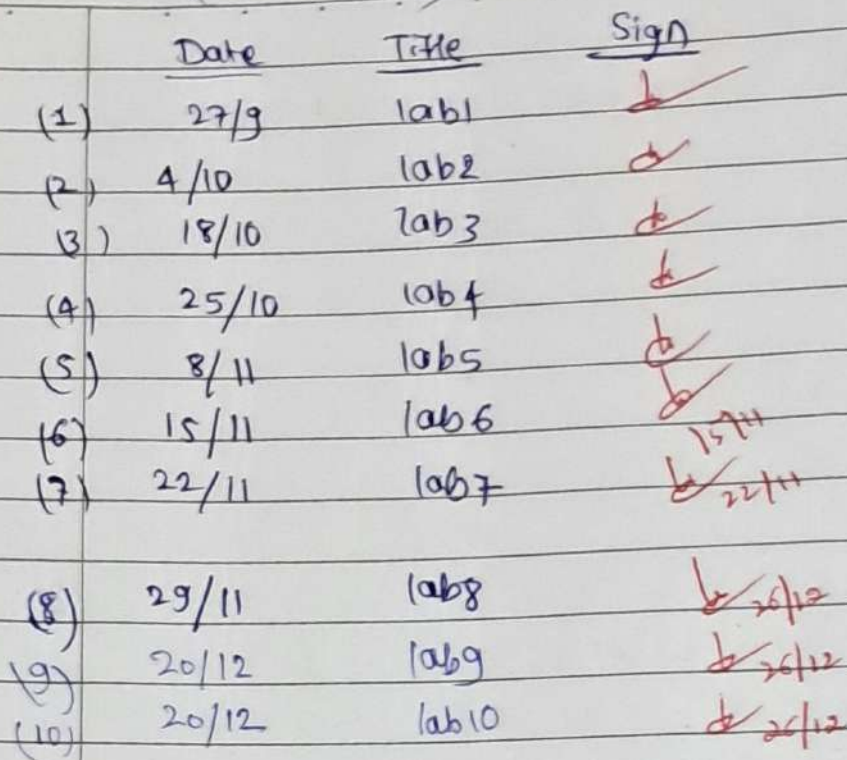 Date Title Sign
(1) 27/9 lab1
(2) 4/10 lab2
(3) 18/10 lab3
(4) 25/10 lab4
(5) 8/11 lab5
(6) 15/11 lab6 15/11
(7) 22/11 lab7 22/11
(8) 29/11 lab8 26/12
(9) 20/12 lab9 26/12
(10) 20/12 lab10 26/12